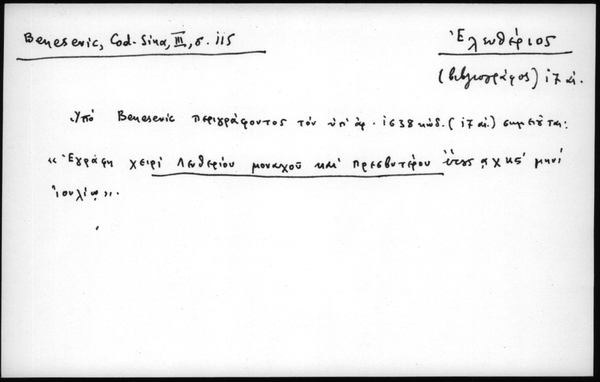 Benesevic, Cod. Sina, III, σ. 115
Ἐλευθέριος
(βιβλιογράφος) 17 αἰ.
Ὑπό Benesevic περιγράφοντος τόν ὑπ' ἀρ. 1638 κώδ. (17 αἰ.) σημειοῦται:
«Ἐγράφη χειρί Λευθερίου μοναχοῦ καί πρεσβυτέρου ἔτους ͵αχκϛ´ μηνί
ἰουλίῳ».